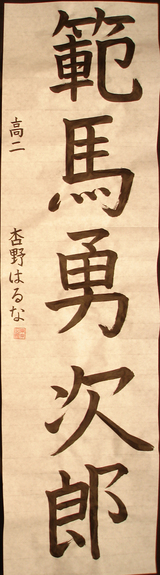 範馬勇次郎
高二 杏野はるな